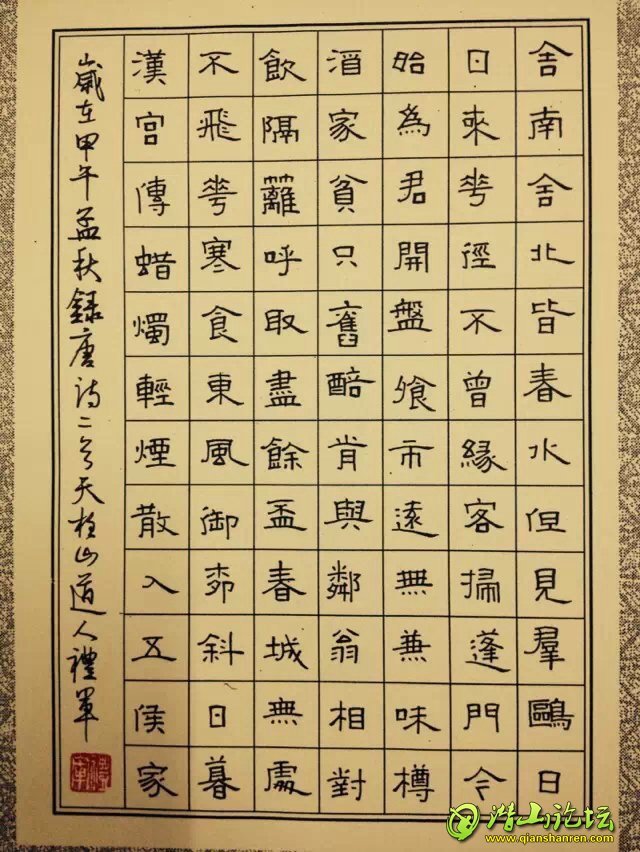 舍南舍北皆春水但見羣鷗日
日來花徑不曾緣客掃蓬門今
始為君開盤飧市遠無兼味樽
酒家貧只舊醅肯與鄰翁相對
飲隔籬呼取盡餘盃春城無處
不飛花寒食東風御柳斜日暮
漢宮傳蜡燭輕煙散入五侯家
歲在甲午孟秋錄唐诗二首天柱山道人禮軍
潜山论坛
www.qianshanren.com